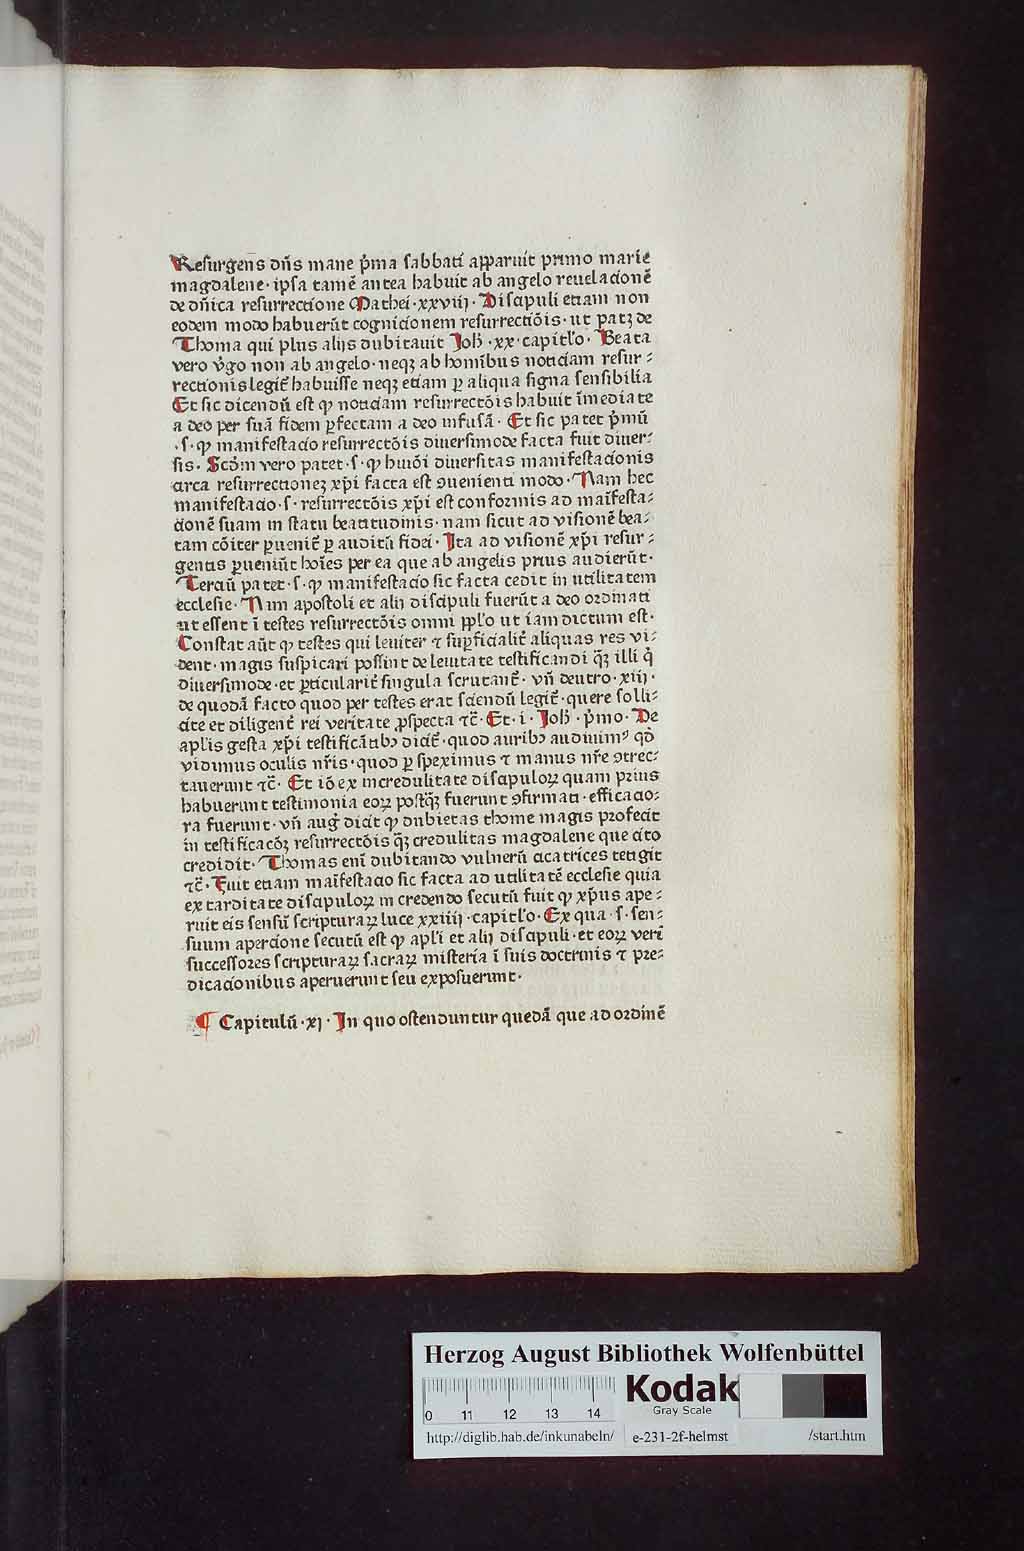 Resurgens dn̄s mane p̄ma sabbati apparuit primo marie
magdalene · ipsa tamē antea habuit ab angelo reuelacionē
de dn̄ica resurrectione Mathei · xxviij · Discipuli etiam non
eodem modo habuerūt cognicionem resurrectiōis · ut patꝫ de
Thoma qui plus alijs dubitauit Joh̄ · xx · capitl̄o · Beata
vero v̓go non ab angelo · neqꝫ ab homībus noticiam resur⸗
rectionis legit̄ habuisse neqꝫ etiam ꝑ aliqua signa sensibilia
Et sic dicendū est ꝙ noticiam resurrectōis habuit īmediate
a deo per suā fidem ꝑfectam a deo infusā · Et sic patet p̄mū
· s · ꝙ manifestacio resurrectōis diuersimode facta fuit diuer⸗
sis · Scd̄m vero patet · s · ꝙ huiōi diuersitas manifestacionis
circa resurrectionez xp̄i facta est ꝯuenienti modo · Nam hec
manifestacio · s · resurrectōis xp̄i est conformis ad maīfesta⸗
cionē suam in statu beatitudinis · nam sicut ad visionē bea⸗
tam cōiter ꝑuenit̄ ꝑ auditū fidei · Ita ad visionē xp̄i resur⸗
gentis ꝑueniūt hoīes per ea que ab angelis prius audierūt ·
Terciū patet · s · ꝙ manifestacio sic facta cedit in utilitatem
ecclesie · Nam apostoli et alij discipuli fuerūt a deo ordinati
ut essent ī testes resurrectōis omni ppl̄o ut iam dictum est ·
Constat aūt ꝙ testes qui leuiter ⁊ suꝑficialit̄ aliquas res vi⸗
dent · magis suspicari possint de leuitate testificandi qꝫ̄ illi q̓
diuersimode · et ꝑticularit̄ singula scrutant̄ · vn̄ deutro · xiij ·
de quodā facto quod per testes erat sciendū legit̄ · quere solli⸗
cite et diligent̄ rei veritate ꝓspecta ⁊c̄ · Et · i · Joh̄ · p̄mo · De
aplis gesta xp̄i testificātibꝰ dicit̄ · quod auribꝰ audiuimꝰ qd̄
vidimus oculis nr̄is · quod ꝑspeximus ⁊ manus nr̄e ꝯtrec⸗
tauerunt ⁊c̄ · Et iō ex incredulitate discipuloꝝ quam prius
habuerunt testimonia eoꝝ postqꝫ̄ fuerunt ꝯfirmati · efficacio⸗
ra fuerunt · vn̄ aug̓ dicit ꝙ dubietas thome magis profecit
in testificacōꝫ resurrectōis qꝫ̄ credulitas magdalene que cito
credidit · Thomas enī dubitando vulnerū cicatrices tetigit
⁊c̄ · Fuit etiam maīfestacio sic facta ad utilitatē ecclesie quia
ex tarditate discipuloꝝ in credendo secutū fuit ꝙ xp̄us ape⸗
ruit eis sensū scripturaꝝ luce xxiiij · capitl̄o · Ex qua · s · sen⸗
suum apercione secutū est ꝙ apl̄i et alij discipuli · et eoꝝ veri
successores scripturaꝝ sacraꝝ misteria ī suis doctrinis ⁊ pre⸗
dicacionibus aperuerunt seu exposuerunt ·
¶ Capitulū · xj · In quo ostenduntur quedā que ad ordinē
Herzog August Bibliothek Wolfenbüttel
0 11 12 13 14
Kodak
Gray Scale
http://diglib.hab.de/inkunabeln/ e-231-2f-helmst /start.htm